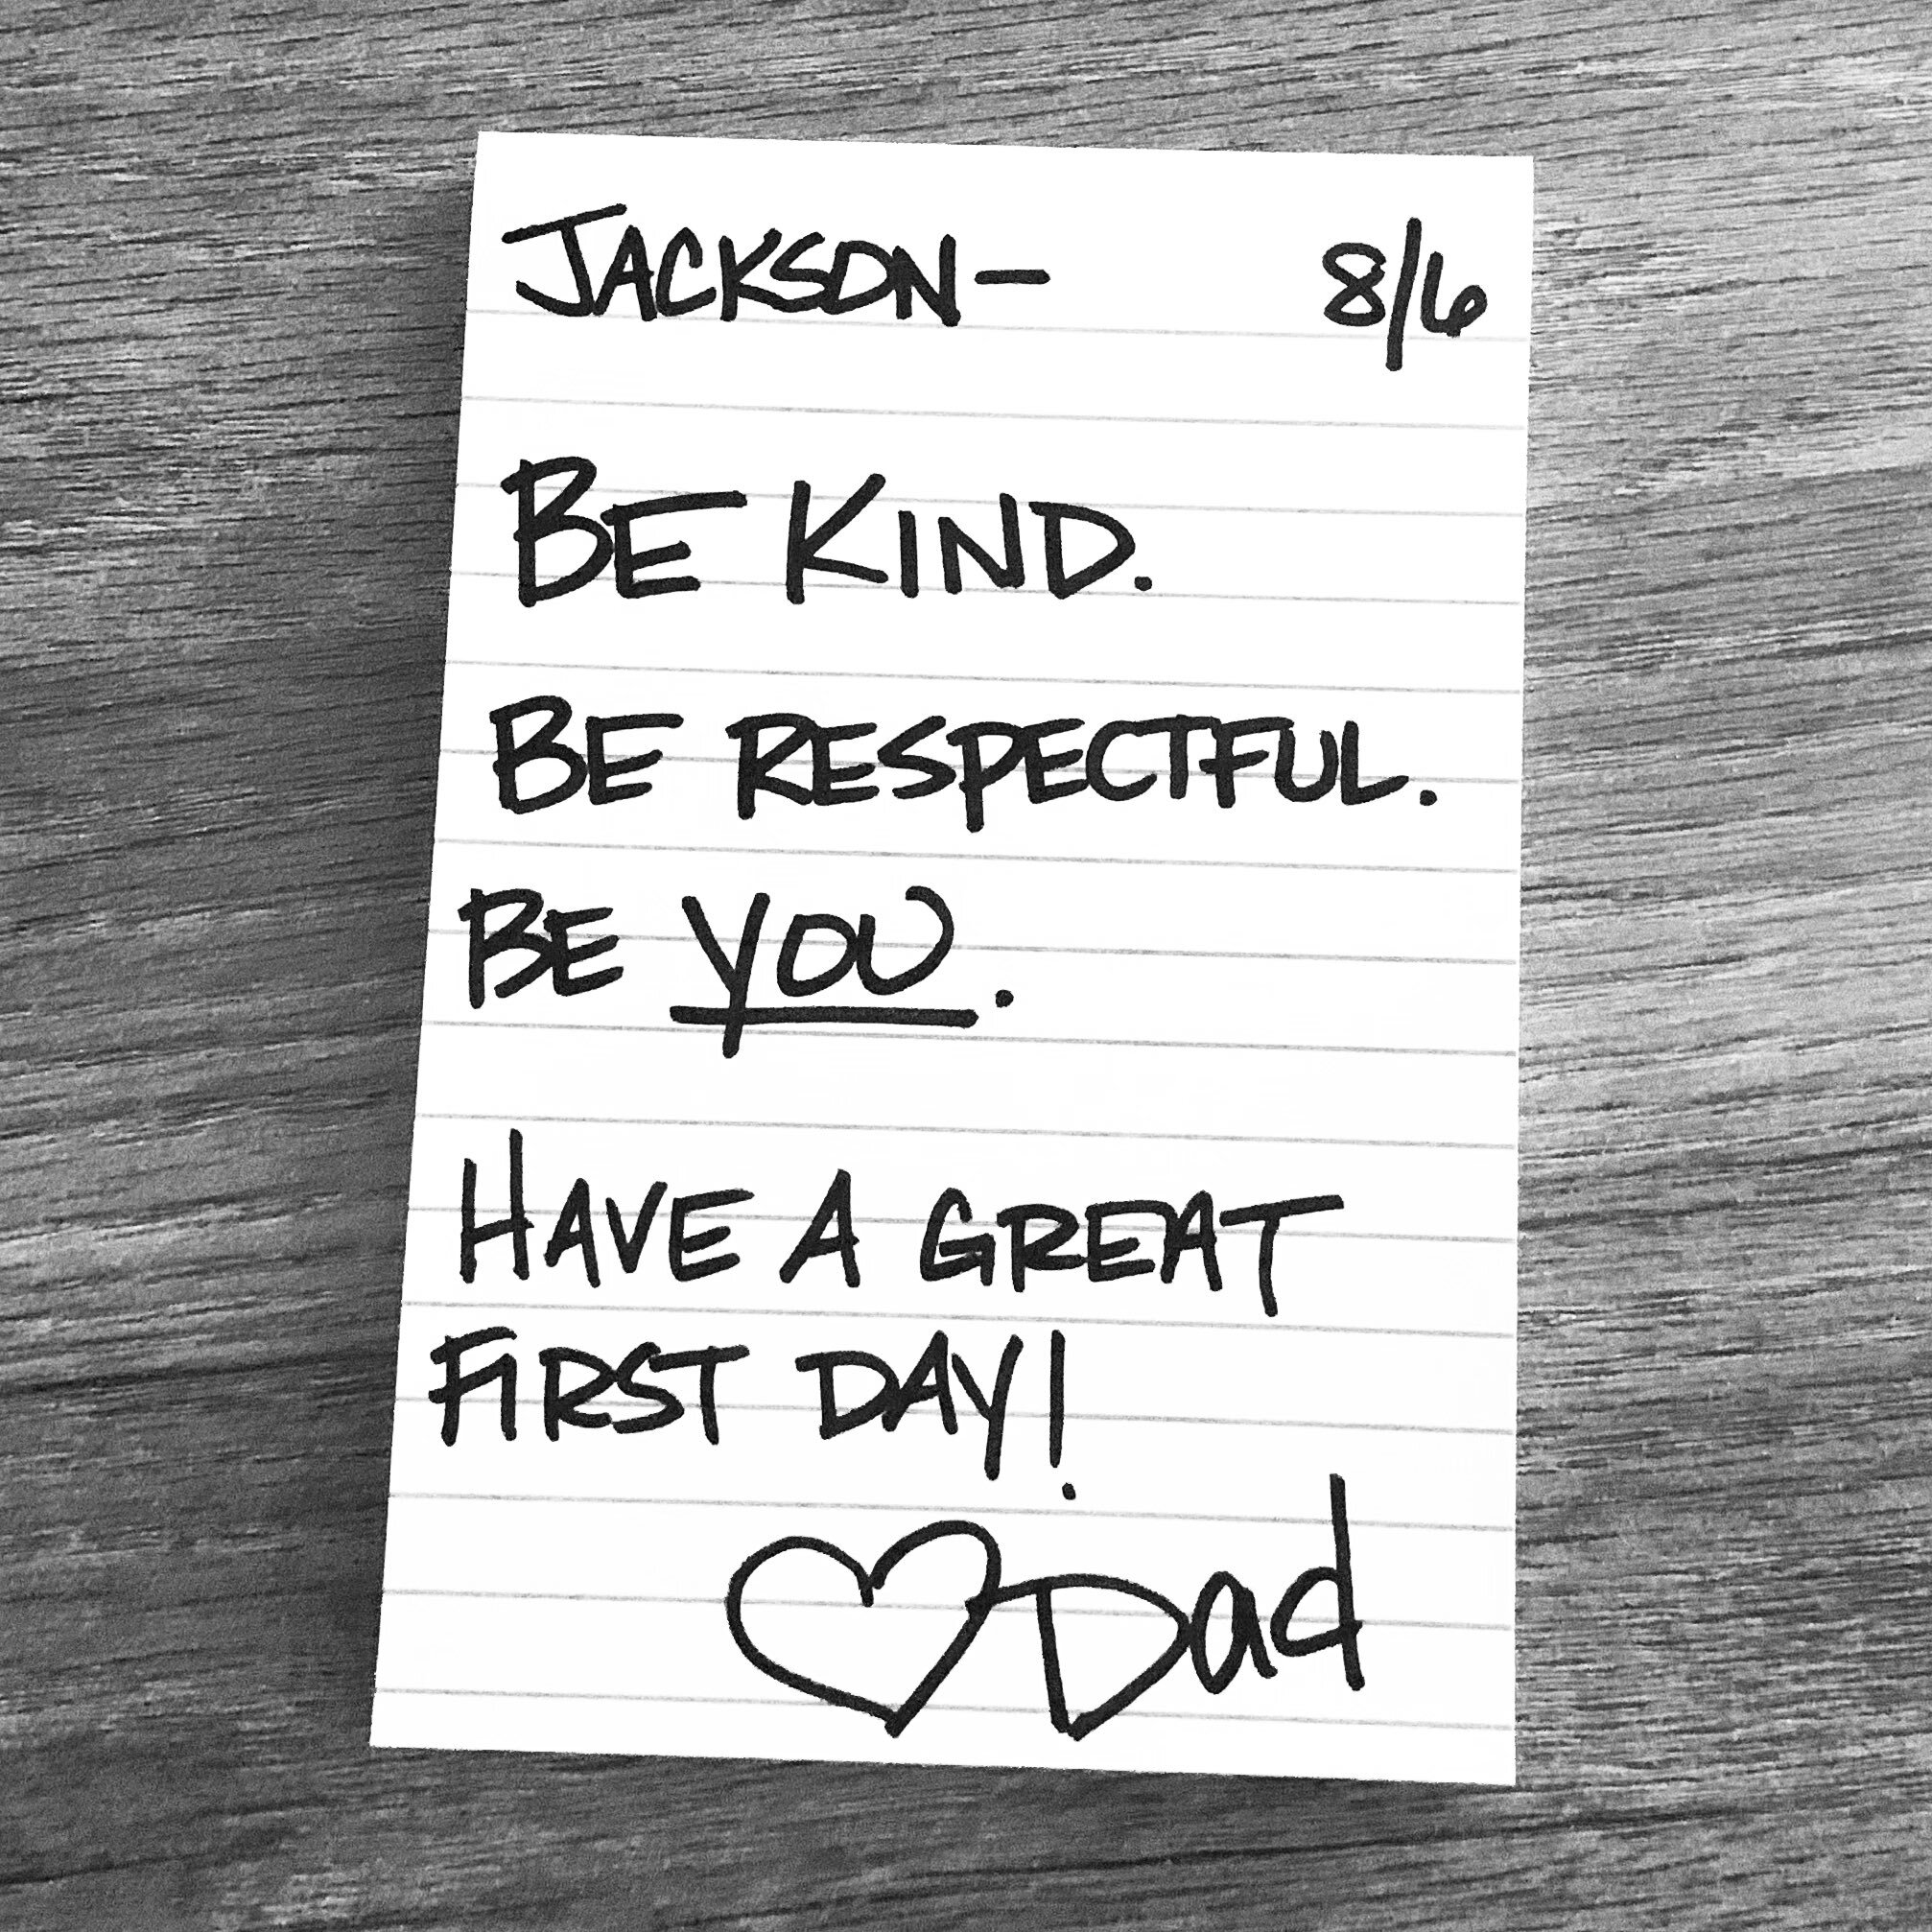 JACKSON— 8/6
BE KIND.
BE RESPECTFUL.
BE YOU.
HAVE A GREAT
FIRST DAY!
♡Dad